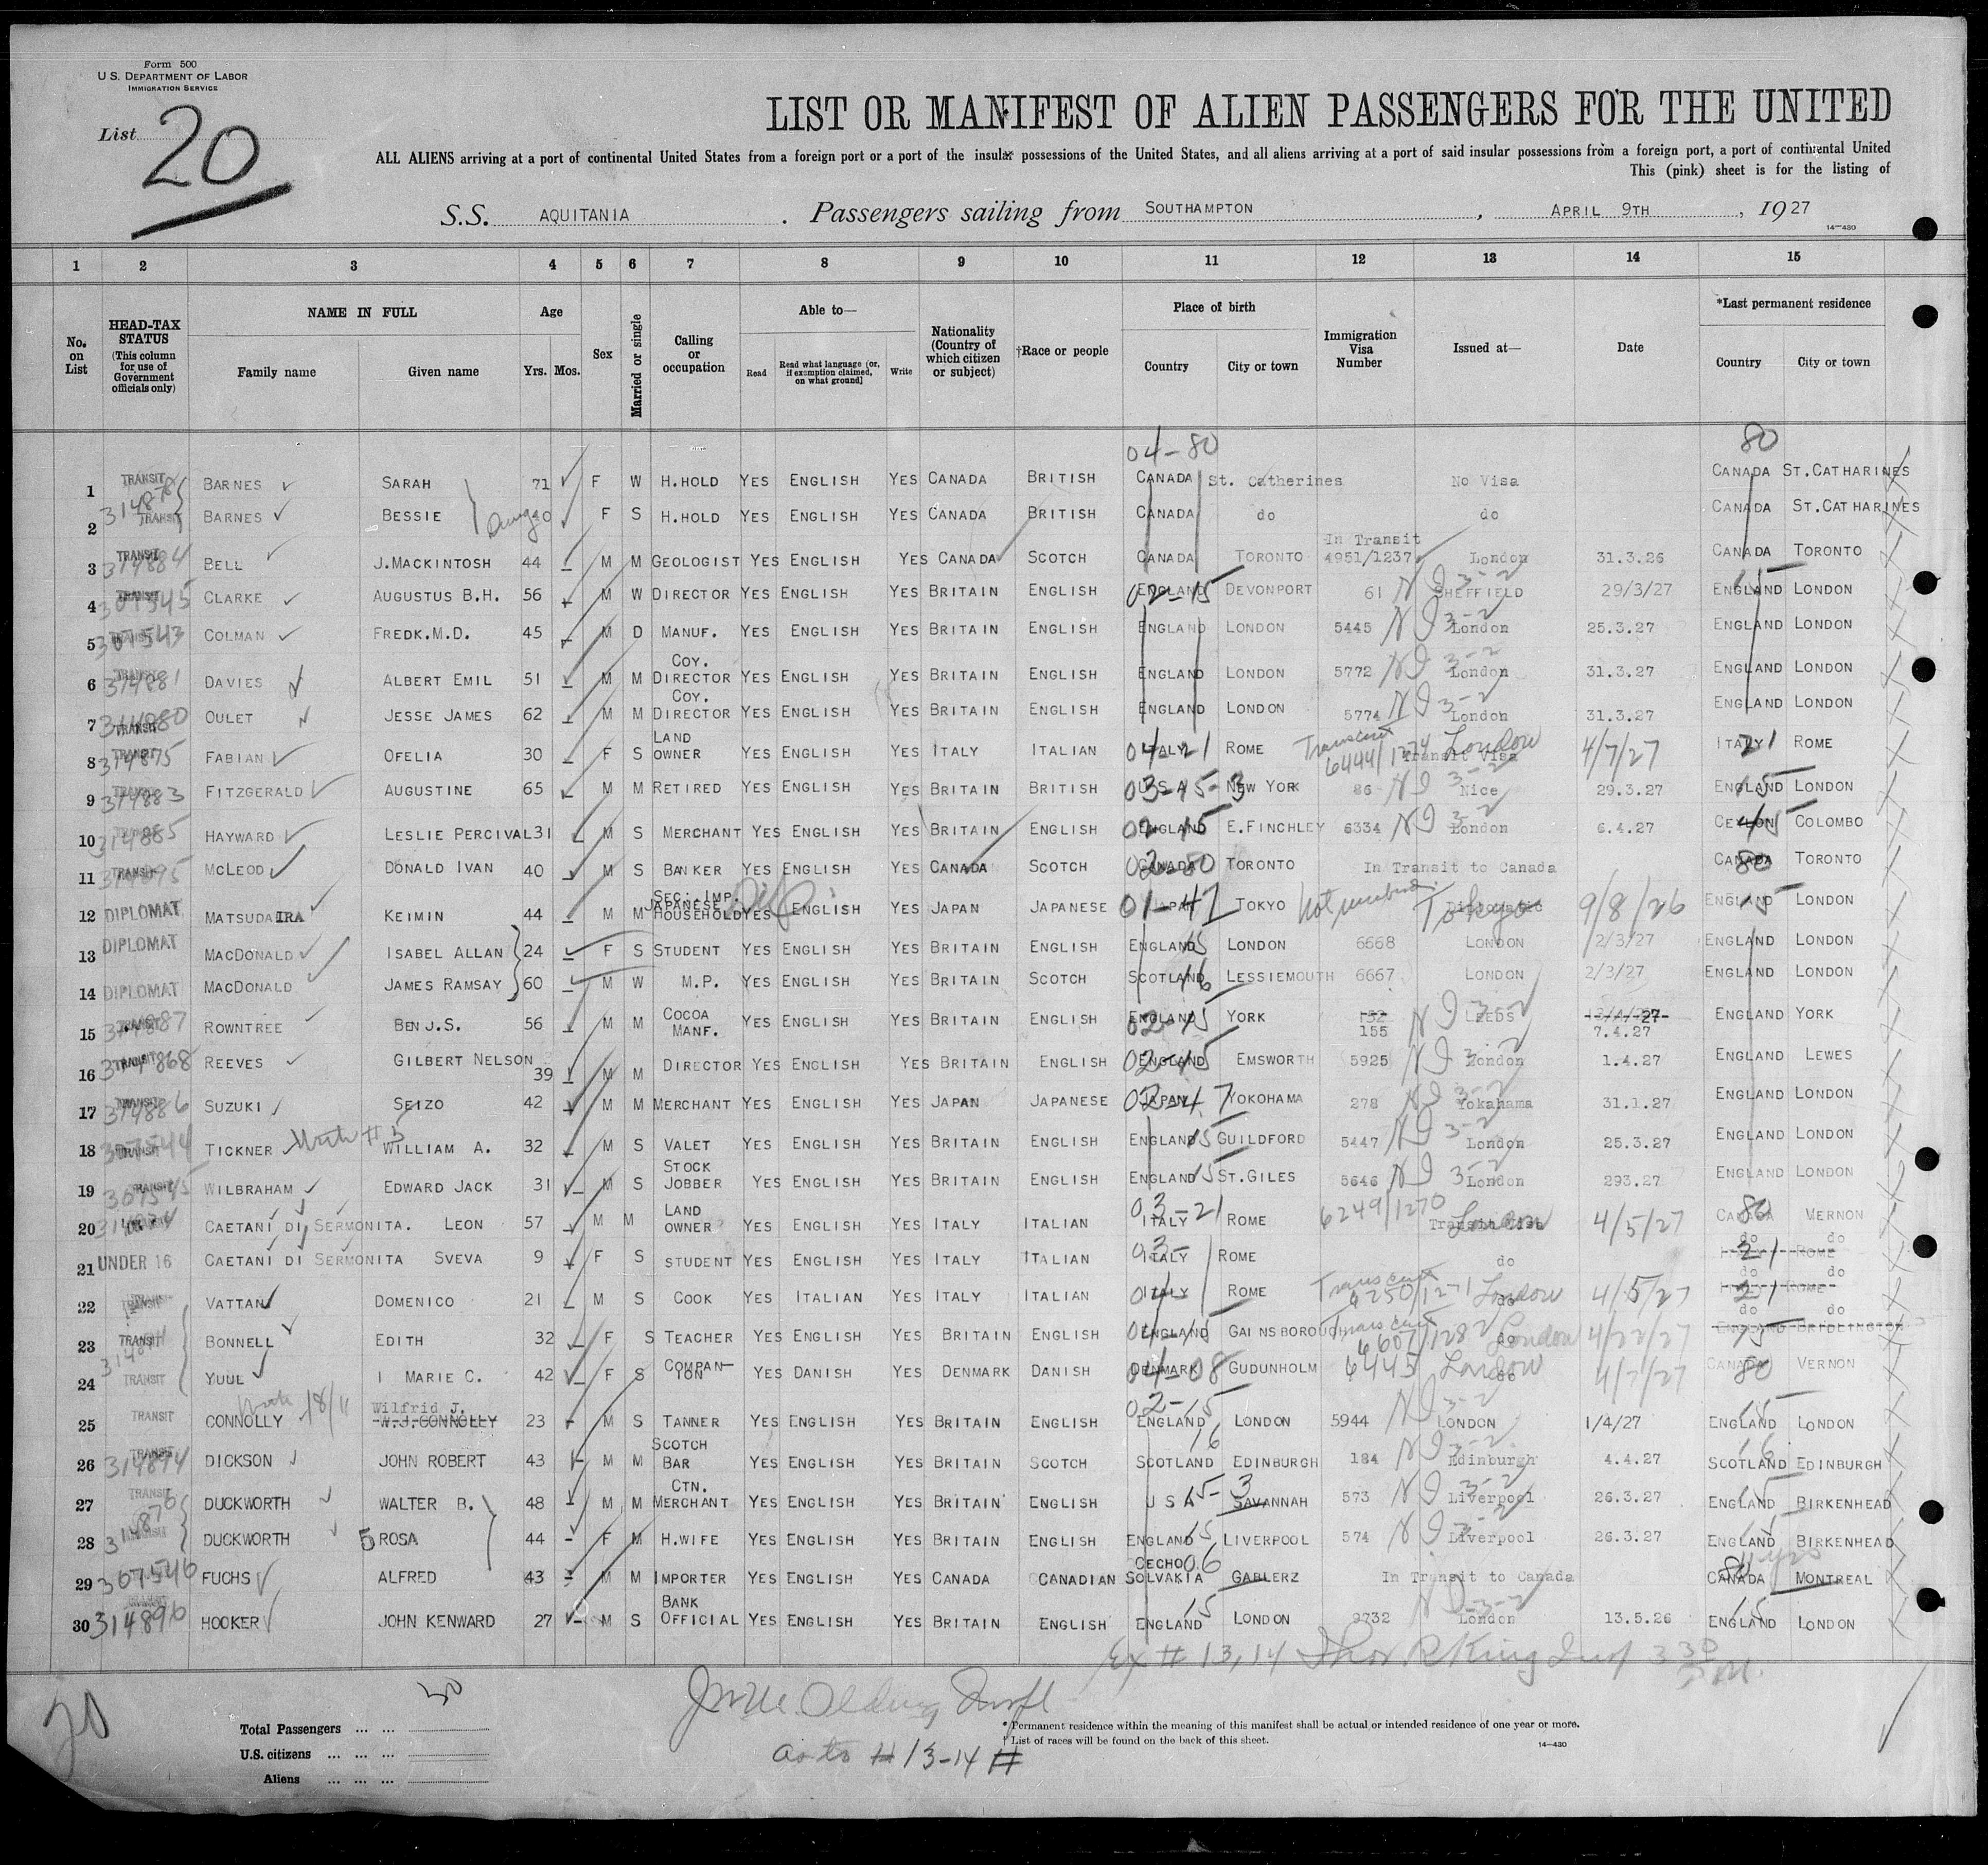 Form 500
U.S. DEPARTMENT OF LABOR
IMMIGRATION SERVICE
List 20
LIST OR MANIFEST OF ALIEN PASSENGERS FOR THE UNITED
ALL ALIENS arriving at a port of continental United States from a foreign port or a port of the insular possessions of the United States, and all aliens arriving at a port of said insular possessions from a foreign port, a port of continental United
This (pink) sheet is for the listing of
S.S. AQUITANIA . Passengers sailing from SOUTHAMPTON , APRIL 9TH , 1927
14—430
1 2 3 4 5 6 7 8 9 10 11 12 13 14 15
No. on List
HEAD-TAX STATUS (This column for use of Government officials only)
NAME IN FULL
Family name Given name
Age
Yrs. Mos.
Sex
Married or single
Calling or occupation
Able to—
Read
Read what language (or, if exemption claimed, on what ground)
Write
Nationality (Country of which citizen or subject)
†Race or people
Place of birth
Country City or town
Immigration Visa Number
Issued at—
Date
*Last permanent residence
Country City or town
04-80 80
1 TRANSIT BARNES SARAH 71 F W H.HOLD YES ENGLISH YES CANADA BRITISH CANADA St. Catherines No Visa CANADA ST.CATHARINES
31487
2 TRANSIT BARNES BESSIE 40 F S H.HOLD YES ENGLISH YES CANADA BRITISH CANADA do do CANADA ST.CATHARINES
In Transit
3 TRANSIT 314884 BELL J.MACKINTOSH 44 M M GEOLOGIST YES ENGLISH YES CANADA SCOTCH CANADA TORONTO 4951/1237 London 31.3.26 CANADA TORONTO
4 TRANSIT 307545 CLARKE AUGUSTUS B.H. 56 M W DIRECTOR YES ENGLISH YES BRITAIN ENGLISH ENGLAND 02-15 DEVONPORT 61 NI 3-2 SHEFFIELD 29/3/27 ENGLAND 15 LONDON
5 TRANSIT 307543 COLMAN FREDK.M.D. 45 M D MANUF. YES ENGLISH YES BRITAIN ENGLISH ENGLAND LONDON 5445 NI 3-2 London 25.3.27 ENGLAND LONDON
6 TRANSIT 314881 DAVIES ALBERT EMIL 51 M M COY. DIRECTOR YES ENGLISH YES BRITAIN ENGLISH ENGLAND LONDON 5772 NI 3-2 London 31.3.27 ENGLAND LONDON
7 TRANSIT 314880 OULET JESSE JAMES 62 M M COY. DIRECTOR YES ENGLISH YES BRITAIN ENGLISH ENGLAND LONDON 5774 NI 3-2 London 31.3.27 ENGLAND LONDON
8 TRANSIT 314875 FABIAN OFELIA 30 F S LAND OWNER YES ENGLISH YES ITALY ITALIAN ITALY 04-21 ROME 6444/1274 Transit Visa London 4/7/27 ITALY 21 ROME
9 TRANSIT 314883 FITZGERALD AUGUSTINE 65 M M RETIRED YES ENGLISH YES BRITAIN BRITISH U S A 03-15-3 NEW YORK 86 NI 3-2 Nice 29.3.27 ENGLAND 15 LONDON
10 TRANSIT 314885 HAYWARD LESLIE PERCIVAL 31 M S MERCHANT YES ENGLISH YES BRITAIN ENGLISH ENGLAND 02-15 E.FINCHLEY 6334 NI 3-2 London 6.4.27 CEYLON 45 COLOMBO
11 TRANSIT MCLEOD DONALD IVAN 40 M S BANKER YES ENGLISH YES CANADA SCOTCH CANADA 02-80 TORONTO In Transit to Canada CANADA 80 TORONTO
12 DIPLOMAT MATSUDAIRA KEIMIN 44 M M SEC: IMP. JAPANESE HOUSEHOLD YES ENGLISH YES JAPAN JAPANESE JAPAN 01-47 TOKYO Diplomatic Tokyo 9/8/26 ENGLAND 15 LONDON
13 DIPLOMAT MACDONALD ISABEL ALLAN 24 F S STUDENT YES ENGLISH YES BRITAIN ENGLISH ENGLAND 15 LONDON 6668 LONDON 2/3/27 ENGLAND LONDON
14 DIPLOMAT MACDONALD JAMES RAMSAY 60 M W M.P. YES ENGLISH YES BRITAIN SCOTCH SCOTLAND 16 LESSIEMOUTH 6667 LONDON 2/3/27 ENGLAND LONDON
15 TRANSIT 314887 ROWNTREE BENJ.S. 56 M M COCOA MANF. YES ENGLISH YES BRITAIN ENGLISH ENGLAND 02-15 YORK 155 NI 3-2 LEEDS 7.4.27 ENGLAND YORK
16 TRANSIT REEVES GILBERT NELSON 39 M M DIRECTOR YES ENGLISH YES BRITAIN ENGLISH ENGLAND 02-15 EMSWORTH 5925 NI 3-2 London 1.4.27 ENGLAND LEWES
17 TRANSIT 314886 SUZUKI SEIZO 42 M M MERCHANT YES ENGLISH YES JAPAN JAPANESE JAPAN 02-47 YOKOHAMA 278 NI 3-2 Yokahama 31.1.27 ENGLAND LONDON
18 TRANSIT 307544 TICKNER With # 5 WILLIAM A. 32 M S VALET YES ENGLISH YES BRITAIN ENGLISH ENGLAND 15 GUILDFORD 5447 NI 3-2 London 25.3.27 ENGLAND LONDON
19 TRANSIT WILBRAHAM EDWARD JACK 31 M S STOCK JOBBER YES ENGLISH YES BRITAIN ENGLISH ENGLAND 15 ST.GILES 5646 NI 3-2 London 293.27 ENGLAND LONDON
20 CAETANI DI SERMONITA. LEON 57 M M LAND OWNER YES ENGLISH YES ITALY ITALIAN ITALY 03-21 ROME 6249/1270 Transit Visa London 4/5/27 CANADA 80 MERNON
21 UNDER 16 CAETANI DI SERMONITA SVEVA 9 F S STUDENT YES ENGLISH YES ITALY ITALIAN ITALY 03- ROME do do do ITALY 21 ROME
22 TRANSIT VATTAN DOMENICO 21 M S COOK YES ITALIAN YES ITALY ITALIAN ITALY 04 ROME 6250/1271 do London 4/5/27 do do ITALY 21 ROME
23 TRANSIT BONNELL EDITH 32 F S TEACHER YES ENGLISH YES BRITAIN ENGLISH ENGLAND 04-15 GAINSBOROUGH 6607/1282 do London 4/22/27 do do ENGLAND BRIDLINGTON
24 TRANSIT YUUL I MARIE C. 42 F S COMPAN—ION YES DANISH YES DENMARK DANISH DENMARK 04-08 GUDUNHOLM 6445 do London 4/7/27 CANADA 80 VERNON
25 TRANSIT CONNOLLY Wilfrid J. W.J.CONNOLLY 23 M S TANNER YES ENGLISH YES BRITAIN ENGLISH ENGLAND 02-15 LONDON 5944 NI 3-2 LONDON 1/4/27 ENGLAND 15 LONDON
26 TRANSIT DICKSON JOHN ROBERT 43 M M SCOTCH BAR YES ENGLISH YES BRITAIN SCOTCH SCOTLAND 16 EDINBURGH 184 NI 3-2 Edinburgh 4.4.27 SCOTLAND 16 EDINBURGH
27 TRANSIT DUCKWORTH WALTER B. 48 M M CTN. MERCHANT YES ENGLISH YES BRITAIN ENGLISH U S A 15-3 SAVANNAH 573 NI 3-2 Liverpool 26.3.27 ENGLAND 15 BIRKENHEAD
314876
28 DUCKWORTH 5 ROSA 44 F M H.WIFE YES ENGLISH YES BRITAIN ENGLISH ENGLAND 15 LIVERPOOL 574 NI 3-2 Liverpool 26.3.27 ENGLAND BIRKENHEAD
29 307546 FUCHS ALFRED 43 M M IMPORTER YES ENGLISH YES CANADA CANADIAN CECHO SOLVAKIA 06 GABLERZ In Transit to Canada CANADA 80 MONTREAL
30 314890 HOOKER JOHN KENWARD 27 M S BANK OFFICIAL YES ENGLISH YES BRITAIN ENGLISH ENGLAND 15 LONDON 9732 NI 3-2 London 13.5.26 ENGLAND 15 LONDON
Ex # 13, 14 Thos R King Insp
20
30
Total Passengers ... ...
U.S. citizens ... ... ...
Aliens ... ... ...
as to # 13-14 #
* Permanent residence within the meaning of this manifest shall be actual or intended residence of one year or more.
† List of races will be found on the back of this sheet.
14—430